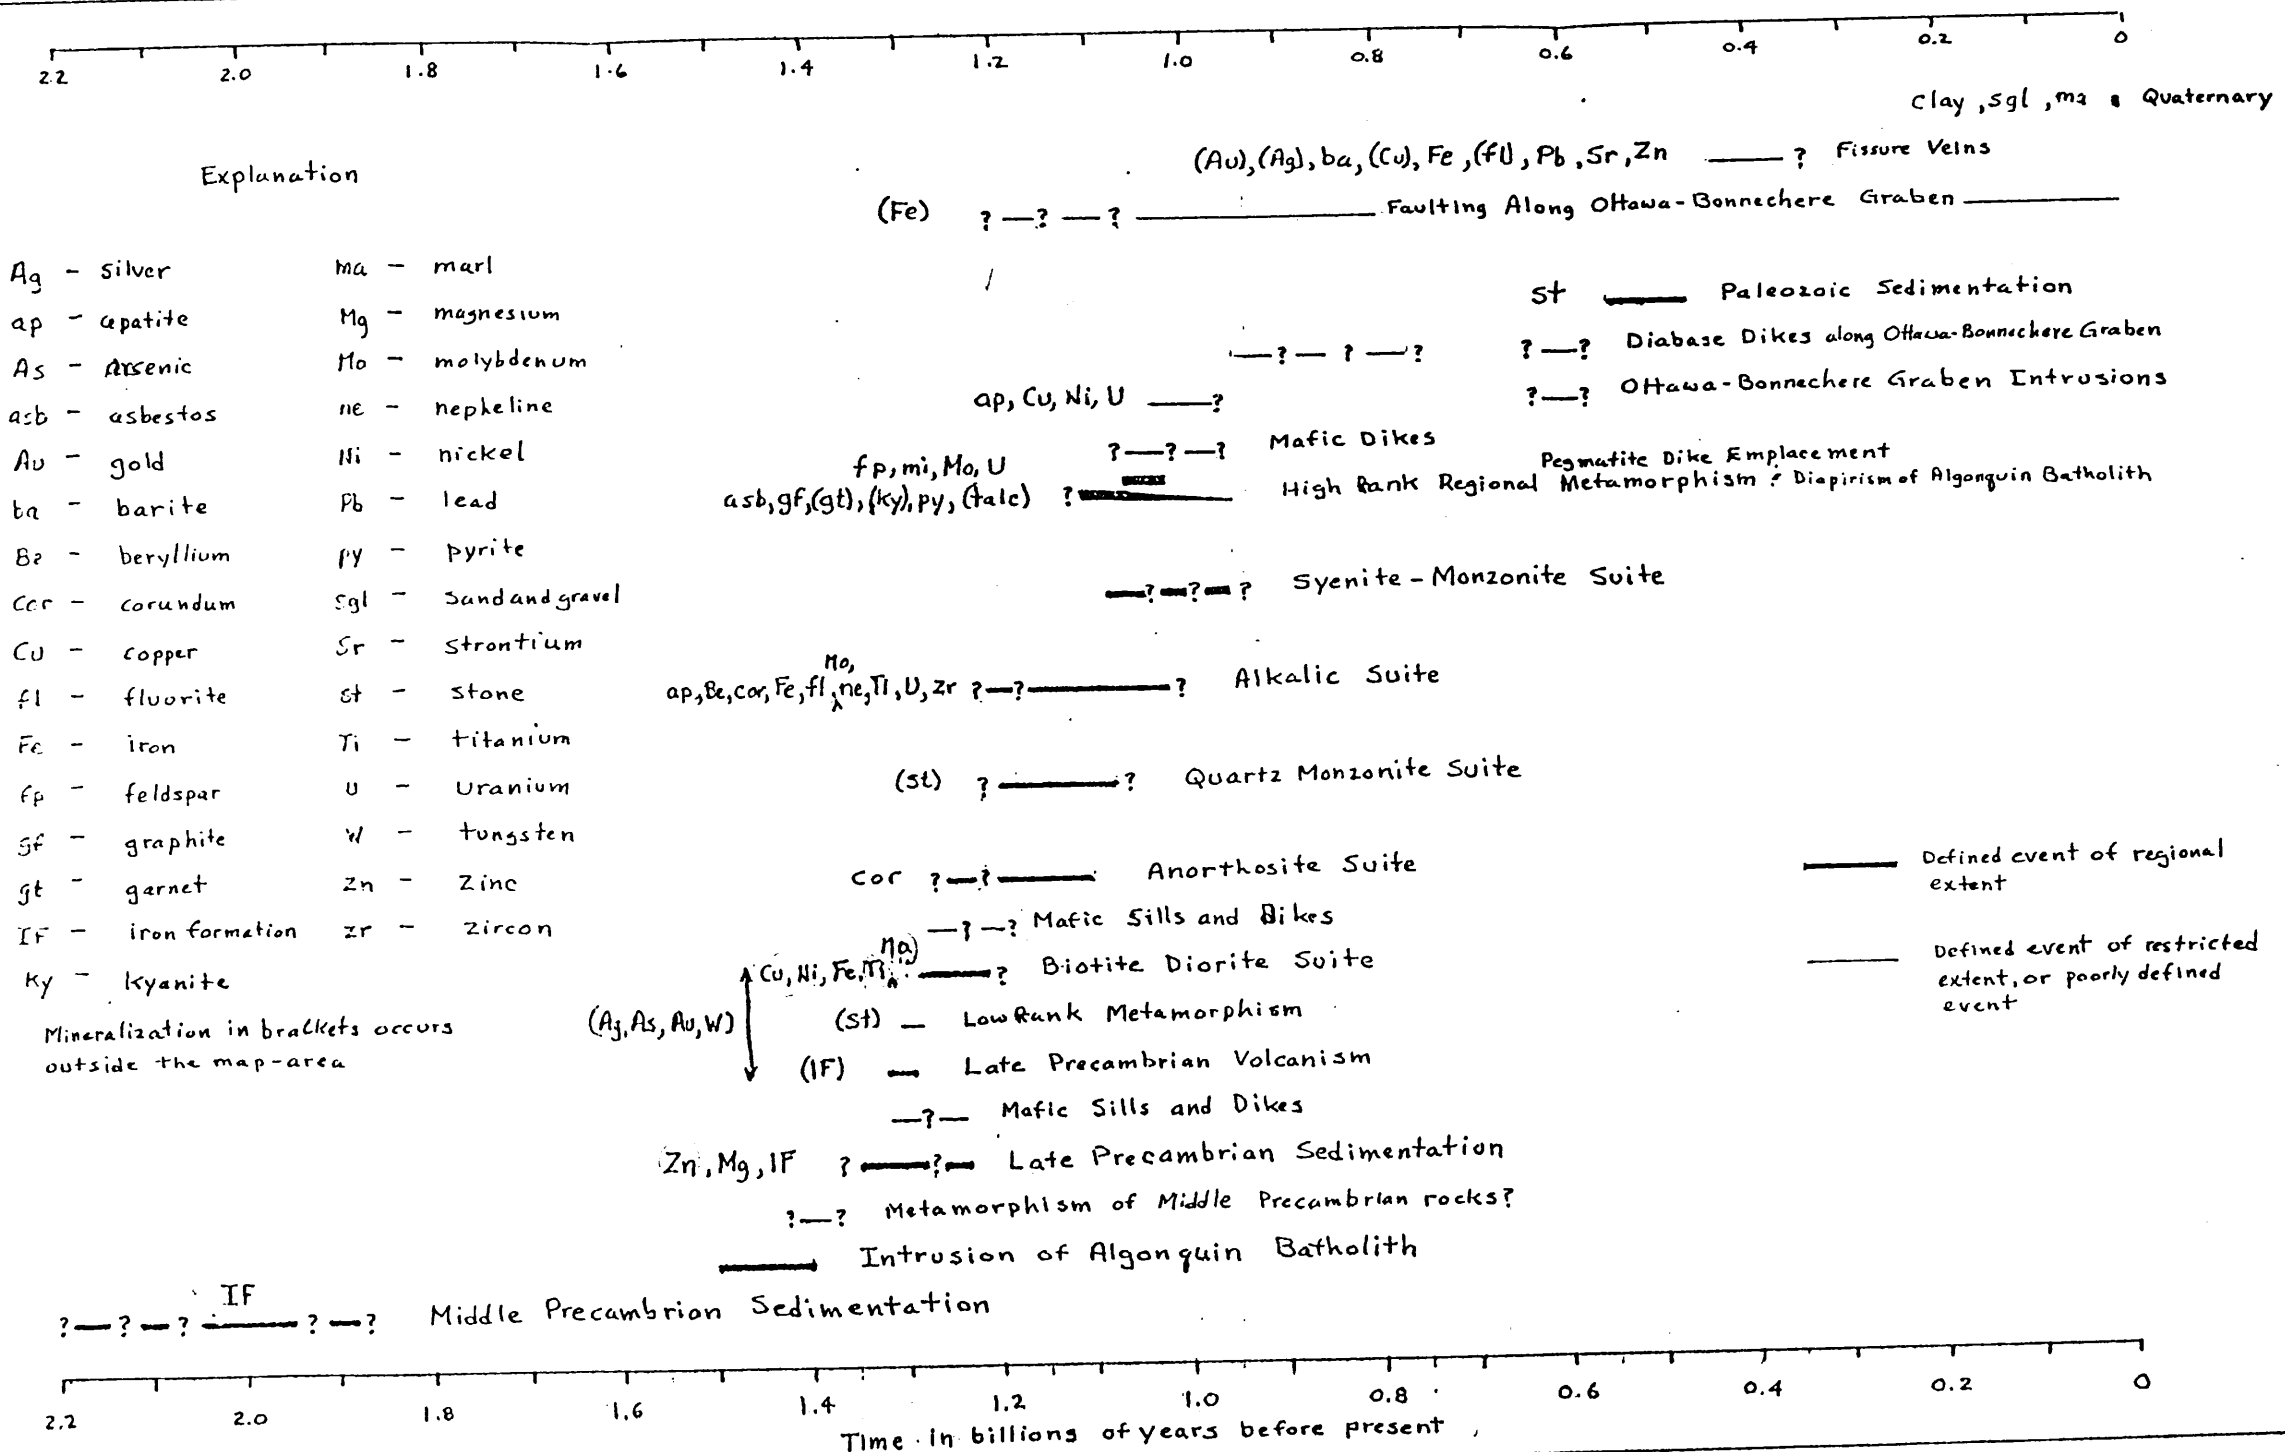 2.2 2.0 1.8 1.6 1.4 1.2 1.0 0.8 0.6 0.4 0.2 0
Clay, sgl, ma Quaternary
(Au), (Ag), ba, (Cu), Fe, (fl), Pb, Sr, Zn ? Fissure Veins
Explanation
(Fe) ? — ? — ? Faulting Along Ottawa-Bonnechere Graben
Ag - silver
ap - apatite
As - Arsenic
asb - asbestos
Au - gold
ba - barite
Be - beryllium
cor - corundum
Cu - copper
fl - fluorite
Fe - iron
fp - feldspar
gf - graphite
gt - garnet
IF - iron formation
Ky - Kyanite
ma - marl
Mg - magnesium
Mo - molybdenum
ne - nepheline
Ni - nickel
Pb - lead
py - pyrite
sgl - Sand and gravel
Sr - strontium
st - stone
Ti - titanium
U - uranium
W - tungsten
Zn - Zinc
zr - zircon
Mineralization in brackets occurs
outside the map-area
st Paleozoic Sedimentation
— ? — ? — ? ? — ? Diabase Dikes along Ottawa-Bonnechere Graben
ap, Cu, Ni, U — ? ? — ? Ottawa-Bonnechere Graben Intrusions
? — ? — ? Mafic Dikes
fp, mi, Mo, U Pegmatite Dike Emplacement
asb, gf, (gt), (ky), py, (talc) ? High Rank Regional Metamorphism ; Diapirism of Algonquin Batholith
— ? — ? — ? Syenite - Monzonite Suite
Mo,
ap, Be, cor, Fe, fl, ne, Ti, U, zr ? — ? — ? Alkalic Suite
(st) ? — ? Quartz Monzonite Suite
cor ? — ? — Anorthosite Suite
— ? — ? Mafic Sills and Dikes
Cu, Ni, Fe, Ti — ? Biotite Diorite Suite
(Ag, As, Au, W) (st) — Low Rank Metamorphism
(IF) — Late Precambrian Volcanism
— ? — Mafic Sills and Dikes
Zn, Mg, IF ? — ? — Late Precambrian Sedimentation
? — ? Metamorphism of Middle Precambrian rocks?
Intrusion of Algonquin Batholith
IF
? — ? — ? — ? — ? Middle Precambrion Sedimentation
Defined event of regional
extent
Defined event of restricted
extent, or poorly defined
event
2.2 2.0 1.8 1.6 1.4 1.2 1.0 0.8 0.6 0.4 0.2 0
Time in billions of years before present